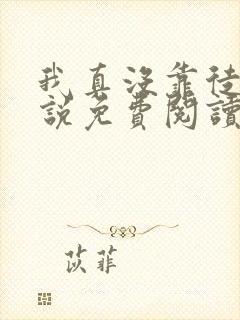 我真沒靠徒
說免費閱讀
苡菲